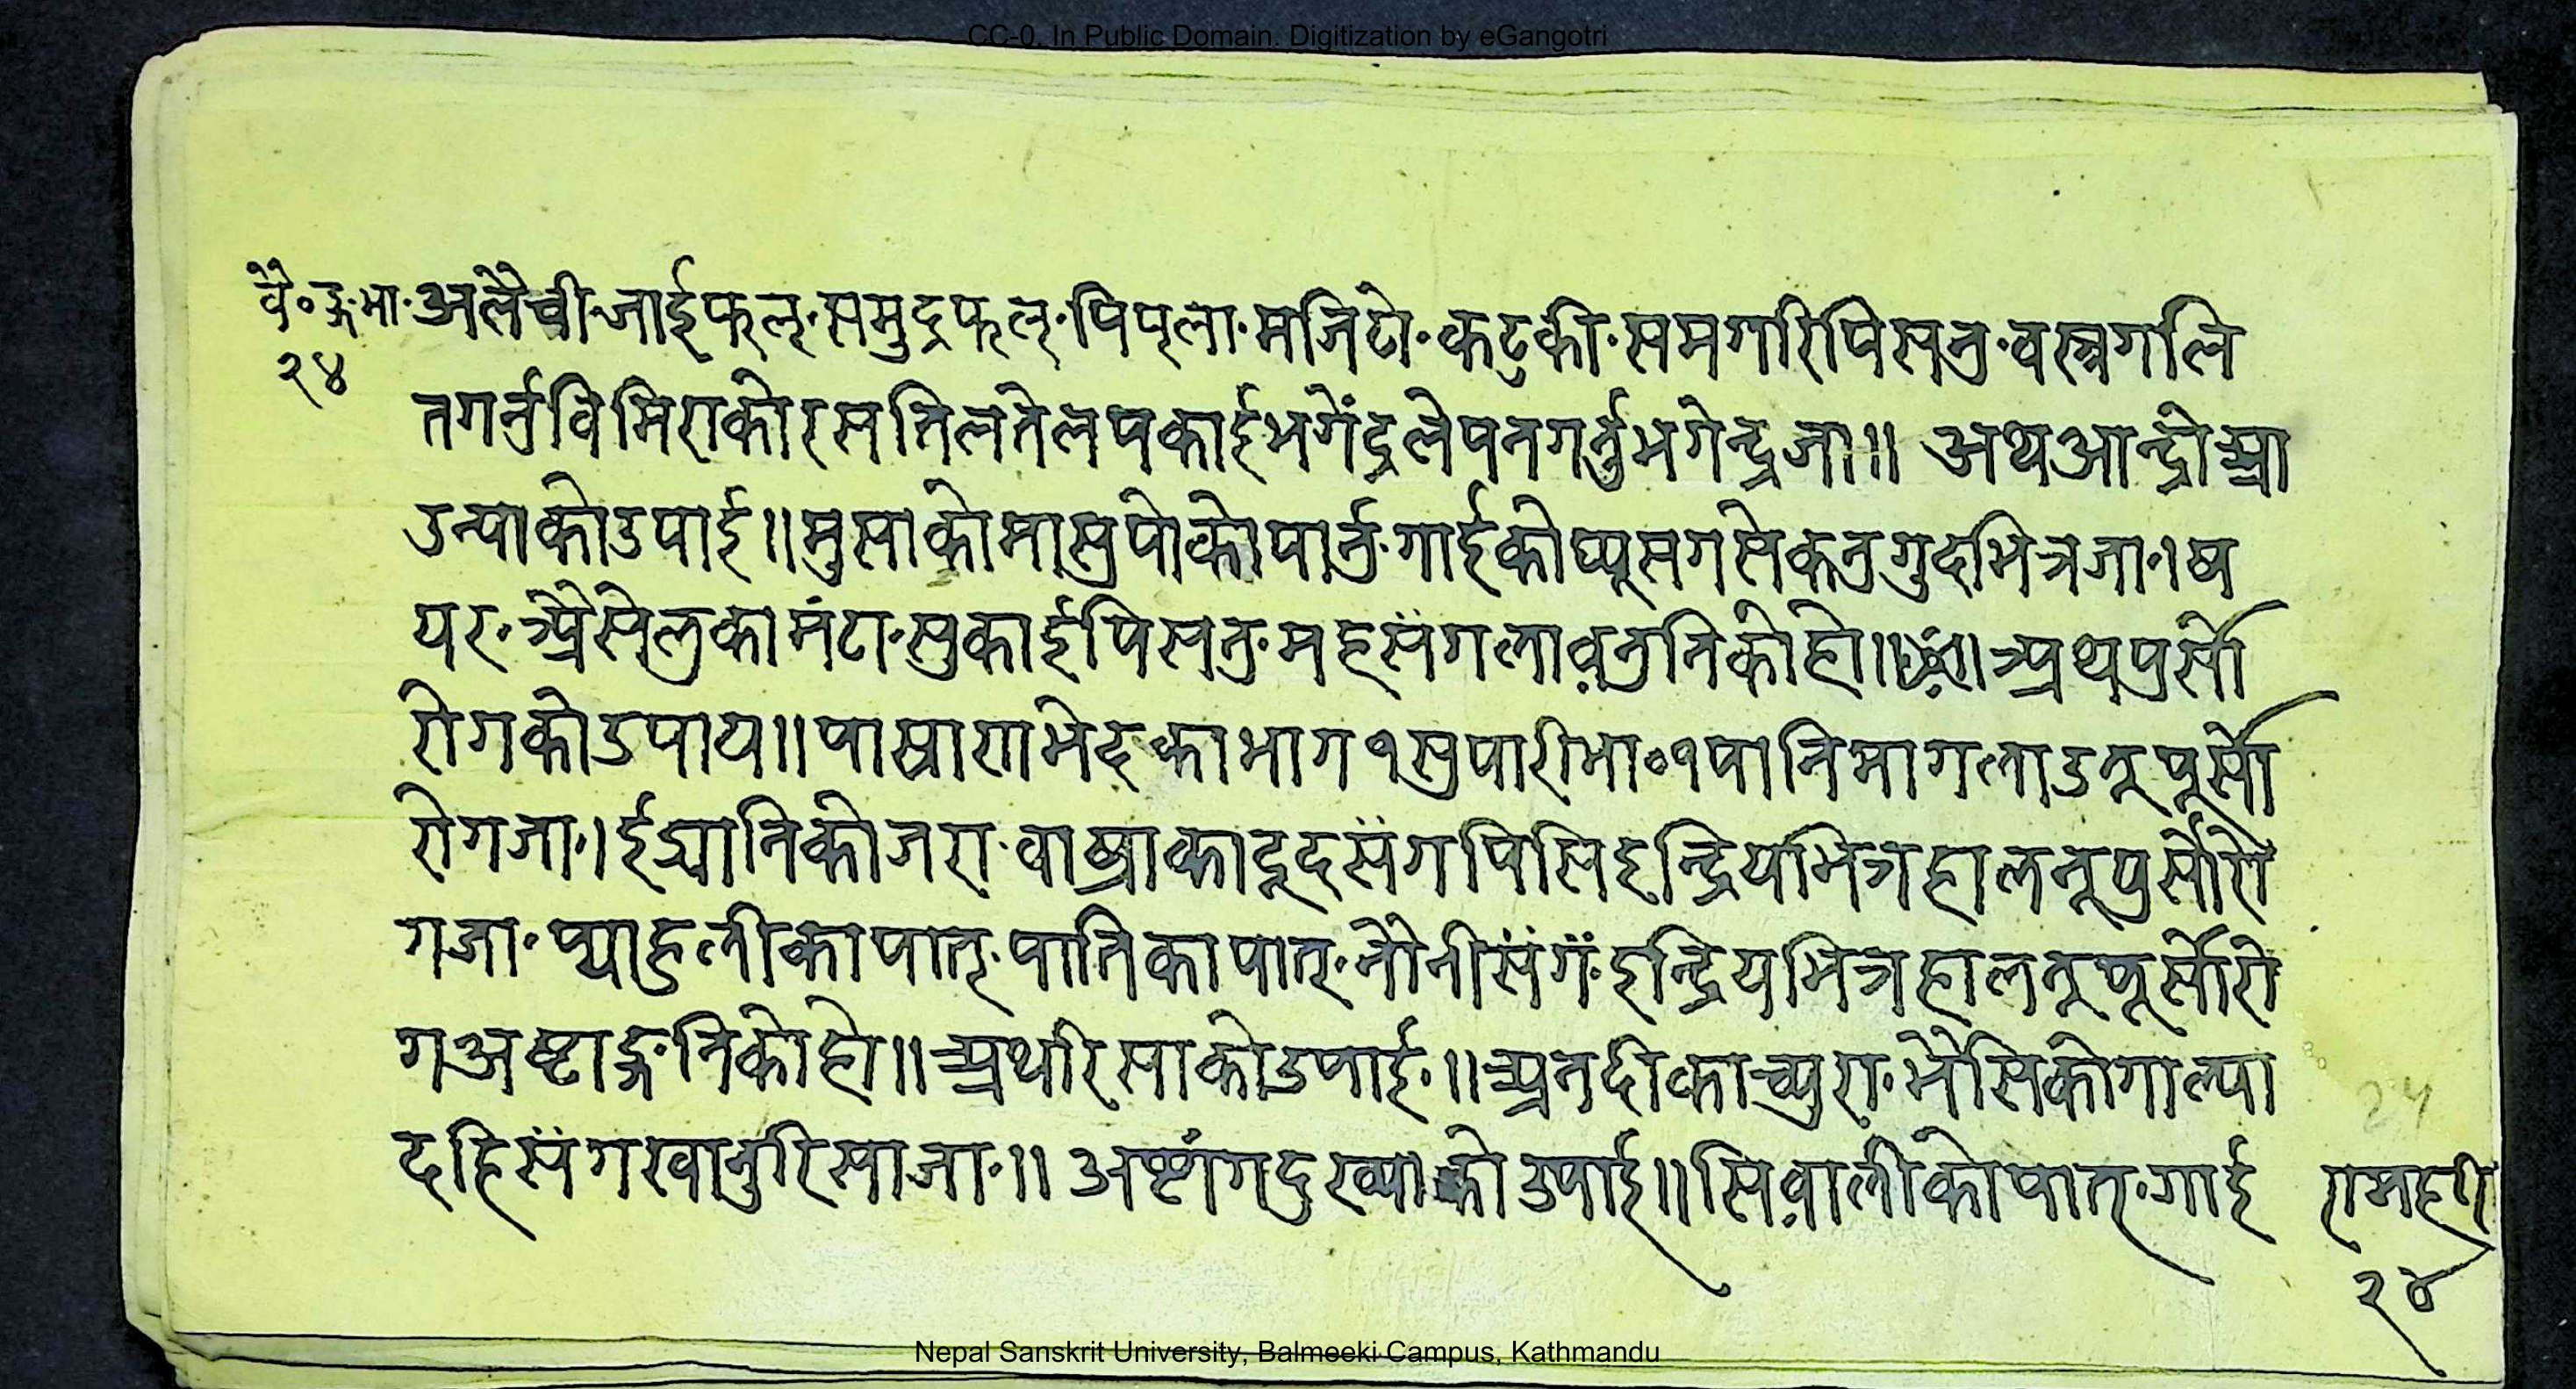 CC-0. In Public Domain. Digitization by eGangotri
वै॰ङ्ग॰भा॰ अलैची॰जाईफल्॰समुद्रफल्॰पिप्ला॰मजिटो॰कटुकी॰समगरिपिस्नु॰वस्त्रगलि
२४
तगर्नुविमिराकोरसतिलतेलपकाईभगेंद्रलेपनगर्नुभगेन्द्रजा॥ अथआन्द्रो
उन्याकोउपाई॥मुसाकोमासुपोकोपार्नु॰गाईकोघ्यूसगसेकनुगुदभित्रजा॰।ष
यर॰अैसेलुकामंटा॰सुकाईपिसनु॰महसंगलावनुनिकोहो॥ अथपुर्सो
रोगकोउपाय॥पाखाणभेद्काभाग१सुपारीभा॰१पानिमागलाउनूपूर्सो
रोगजा॰।ईद्यानिकोजरा॰वाख्राकादूदसंगपिसिइन्द्रियभित्रहालनूपुर्सोरो
गजा॰प्याहुलीकापात्॰पातिकापात्॰नौनीसंगं॰इन्द्रियभित्रहालनूपूर्सोरो
गअष्टाङ्ग॰निकोहो॥अथरिसाकोउपाई॰॥अनदीकाच्युरा॰भैसिकोगाल्या
दहिसंगखानुरिसाजा॰॥ अष्टांगदुख्याकोउपाई॥सिवालीकोपात्॰गाई
24
२४
Nepal Sanskrit University, Balmeeki Campus, Kathmandu